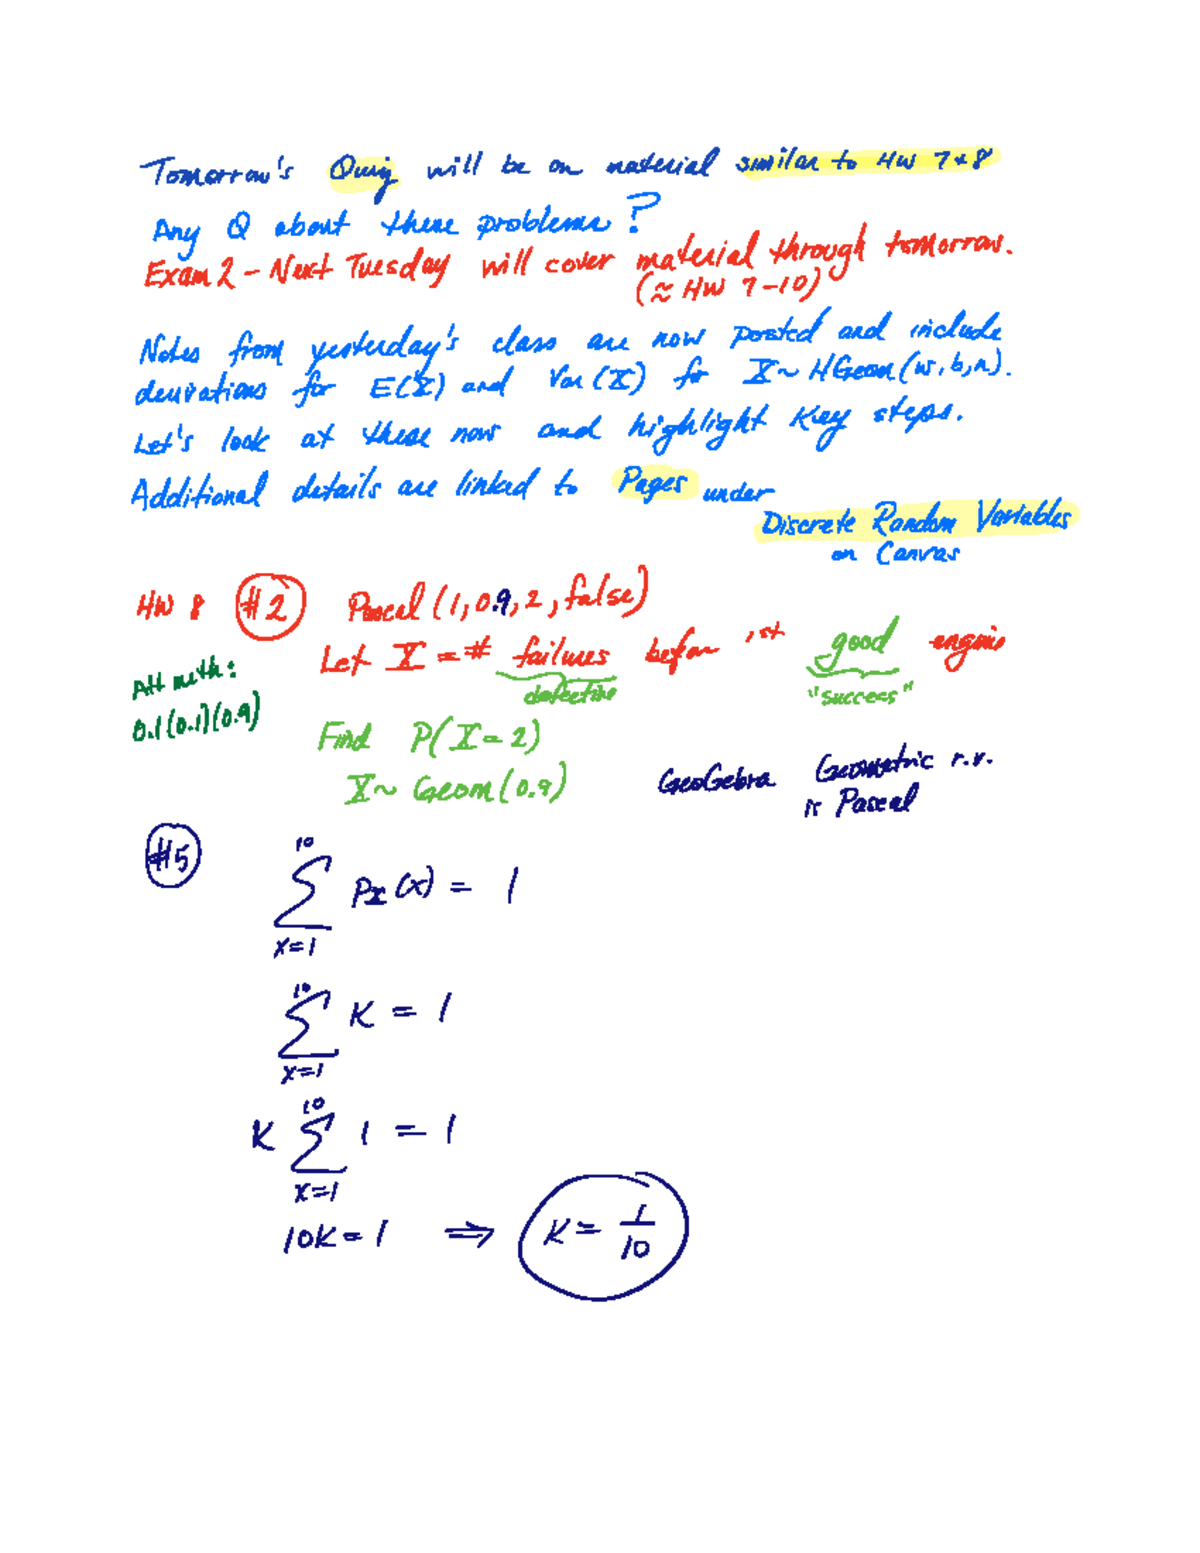 Tomorrow's Quiz will be on material similar to HW 7 & 8
Any Q about these problems?
Exam 2 - Next Tuesday will cover material through tomorrow.
(≈ HW 7-10)
Notes from yesterday's class are now posted and include
derivations for E(X) and Var(X) for X ~ HGeom(w, b, n).
Let's look at these now and highlight key steps.
Additional details are linked to Pages under
Discrete Random Variables
on Canvas
HW 8 #2 Pascal (1, 0.9, 2, false)
Let X = # failures before 1st good engine
defective "success"
Alt meth:
0.1(0.1)(0.9)
Find P(X = 2)
X ~ Geom(0.9) GeoGebra Geometric r.v.
is Pascal
#5
10
∑ pX(x) = 1
x=1
10
∑ K = 1
x=1
10
K ∑ 1 = 1
x=1
10K = 1 ⇒ K = 1/10